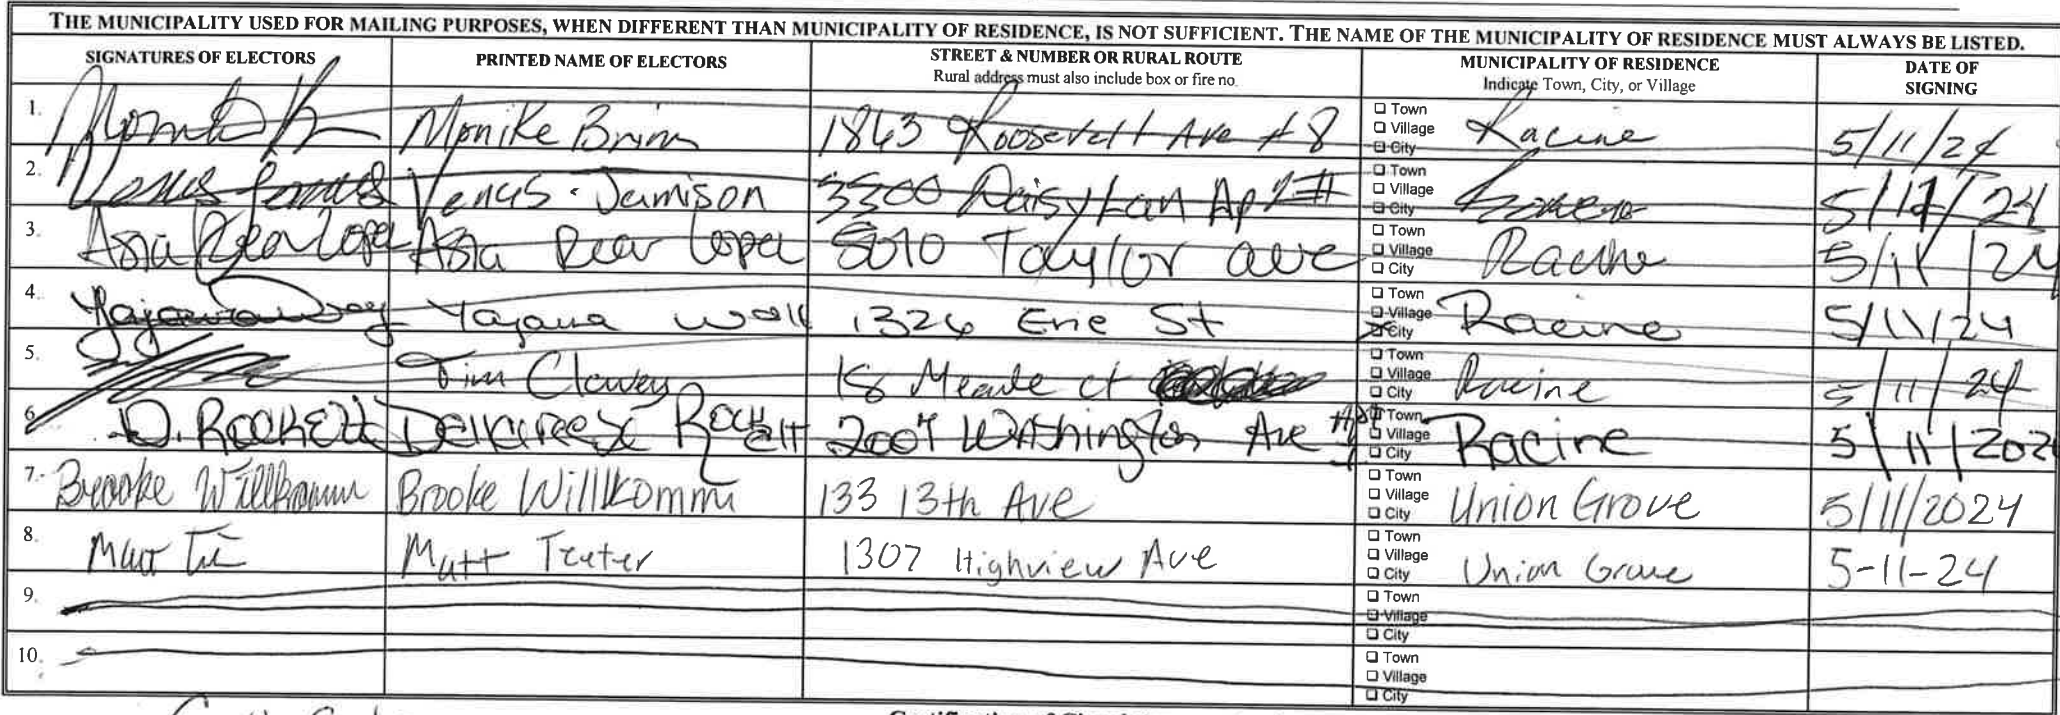 THE MUNICIPALITY USED FOR MAILING PURPOSES, WHEN DIFFERENT THAN MUNICIPALITY OF RESIDENCE, IS NOT SUFFICIENT. THE NAME OF THE MUNICIPALITY OF RESIDENCE MUST ALWAYS BE LISTED.
SIGNATURES OF ELECTORS PRINTED NAME OF ELECTORS STREET & NUMBER OR RURAL ROUTE MUNICIPALITY OF RESIDENCE DATE OF SIGNING
Rural address must also include box or fire no. Indicate Town, City, or Village
1. Monike Brim 1863 Roosevelt Ave #8 Town Village City Racine 5/11/24
2. Venus Jamison 3300 Daisy Lan Ap Town Village City 5/11/24
3. Asia Rear Lopez Asia Rear Lopez 5010 Taylor ave Town Village City Racine 5/11/24
4. Yajaura Wall 1326 Erie St Town Village City Racine 5/11/24
5. Tim Clawey 18 ct Town Village City Racine 5/11/24
6. D. Rockett Rockett 2007 Washington Ave Town Village City Racine 5/11/202
7. Brooke Willkomm Brooke Willkomm 133 13th Ave Town Village City Union Grove 5/11/2024
8. Matt Matt Teuter 1307 Highview Ave Town Village City Union Grove 5-11-24
9. Town Village City
10. Town Village City